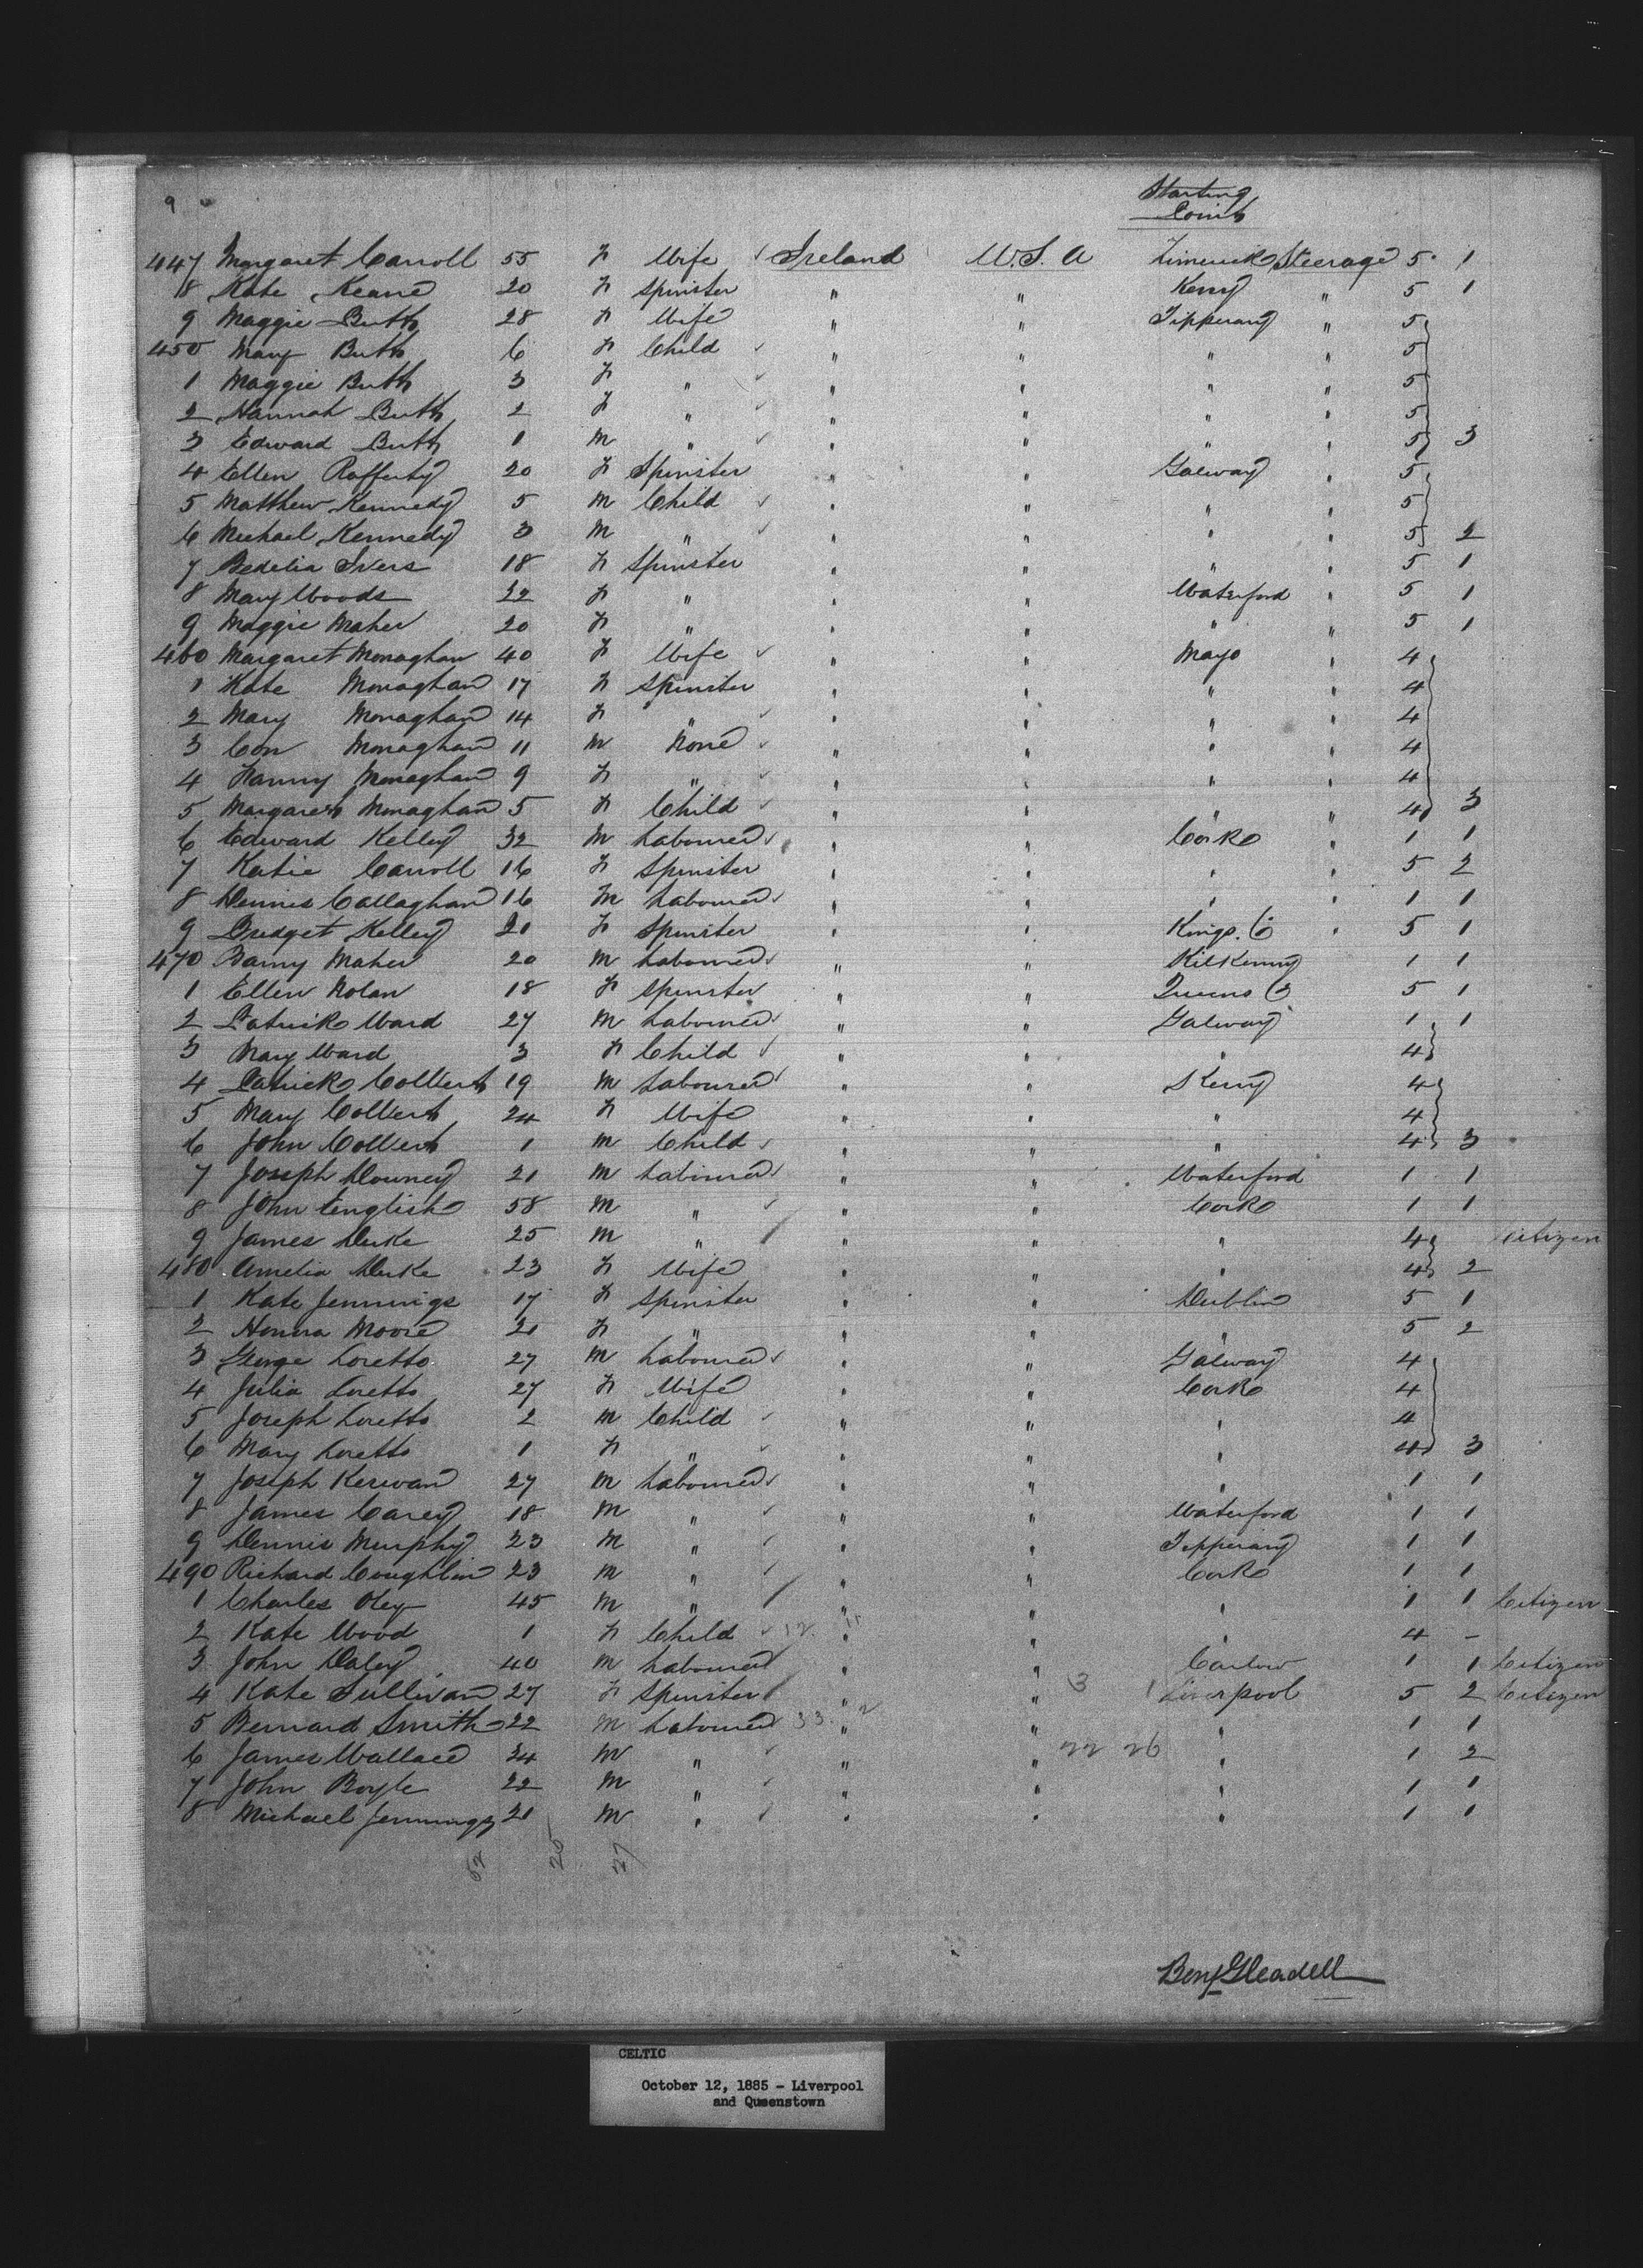 9
Starting
Point
447 Margaret Carroll 55 F Wife Ireland U.S.A Limerick Steerage 5 1
8 Kate Keane 20 F Spinster " " Kerry " 5 1
9 Maggie Butt 28 F Wife " " Tipperary " 5
450 Mary Butt 6 F Child " " " " 5
1 Maggie Butt 3 F " " " " " 5
2 Hannah Butt 2 F " " " " " 5
3 Edward Butt 1 M " " " " " 5 3
4 Ellen Rafferty 20 F Spinster " " Galway " 5
5 Matthew Kennedy 5 M Child " " " " 5
6 Michael Kennedy 3 M " " " " " 5 2
7 Bedelia Ivers 18 F Spinster " " " " 5 1
8 Mary Woods 22 F " " " Waterford " 5 1
9 Maggie Maher 20 F " " " " " 5 1
460 Margaret Monaghan 40 F Wife " " Mayo " 4
1 Kate Monaghan 17 F Spinster " " " " 4
2 Mary Monaghan 14 F " " " " " 4
3 Con Monaghan 11 M None " " " " 4
4 Fanny Monaghan 9 F " " " " " 4
5 Margaret Monaghan 5 F Child " " " " 4 3
6 Edward Kelley 32 M Labourer " " Cork " 1 1
7 Katie Carroll 16 F Spinster " " " " 5 2
8 Dennis Callaghan 16 M Labourer " " " " 1 1
9 Bridget Kelley 21 F Spinster " " Kings Co " 5 1
470 Barny Maher 20 M Labourer " " Kilkenny 1 1
1 Ellen Nolan 18 F Spinster " " Queens Co 5 1
2 Patrick Ward 27 M Labourer " " Galway 1 1
3 Mary Ward 3 F Child " " " 4
4 Patrick Colbert 19 M Labourer " " Kerry 4
5 Mary Colbert 24 F Wife " " " 4
6 John Colbert 1 M Child " " " 4 3
7 Joseph Downey 21 M Labourer " " Waterford 1 1
8 John English 58 M " " " Cork 1 1
9 James Duke 25 M " " " " 4 Citizen
480 Amelia Duke 23 F Wife " " " 4 2
1 Kate Jennings 17 F Spinster " " Dublin 5 1
2 Honora Moore 21 F " " " " 5 2
3 George Loretto 27 M Labourer " " Galway 4
4 Julia Loretto 27 F Wife " " Cork 4
5 Joseph Loretto 2 M Child " " " 4
6 Mary Loretto 1 F " " " " 4 3
7 Joseph Kerwan 27 M Labourer " " " 1 1
8 James Carey 18 M " " " Waterford 1 1
9 Dennis Murphy 23 M " " " Tipperary 1 1
490 Richard Coughlin 23 M " " " Cork 1 1
1 Charles 45 M " " " " 1 1 Citizen
2 Kate Wood 1 F Child 12 11 " " " 4 -
3 John Daley 40 M Labourer " " Carlow 1 1 Citizen
4 Kate Sullivan 27 F Spinster " " 3 1 Liverpool 5 2 Citizen
5 Bernard Smith 22 M Labourer 33 2 " " " 1 1
6 James Wallace 24 M " " " 22 26 " 1 2
7 John Boyle 22 M " " " " 1 1
8 Michael Jennings 21 M " " " " 1 1
52 25 27
Benj Gleadell
CELTIC
October 12, 1885 - Liverpool
and Queenstown